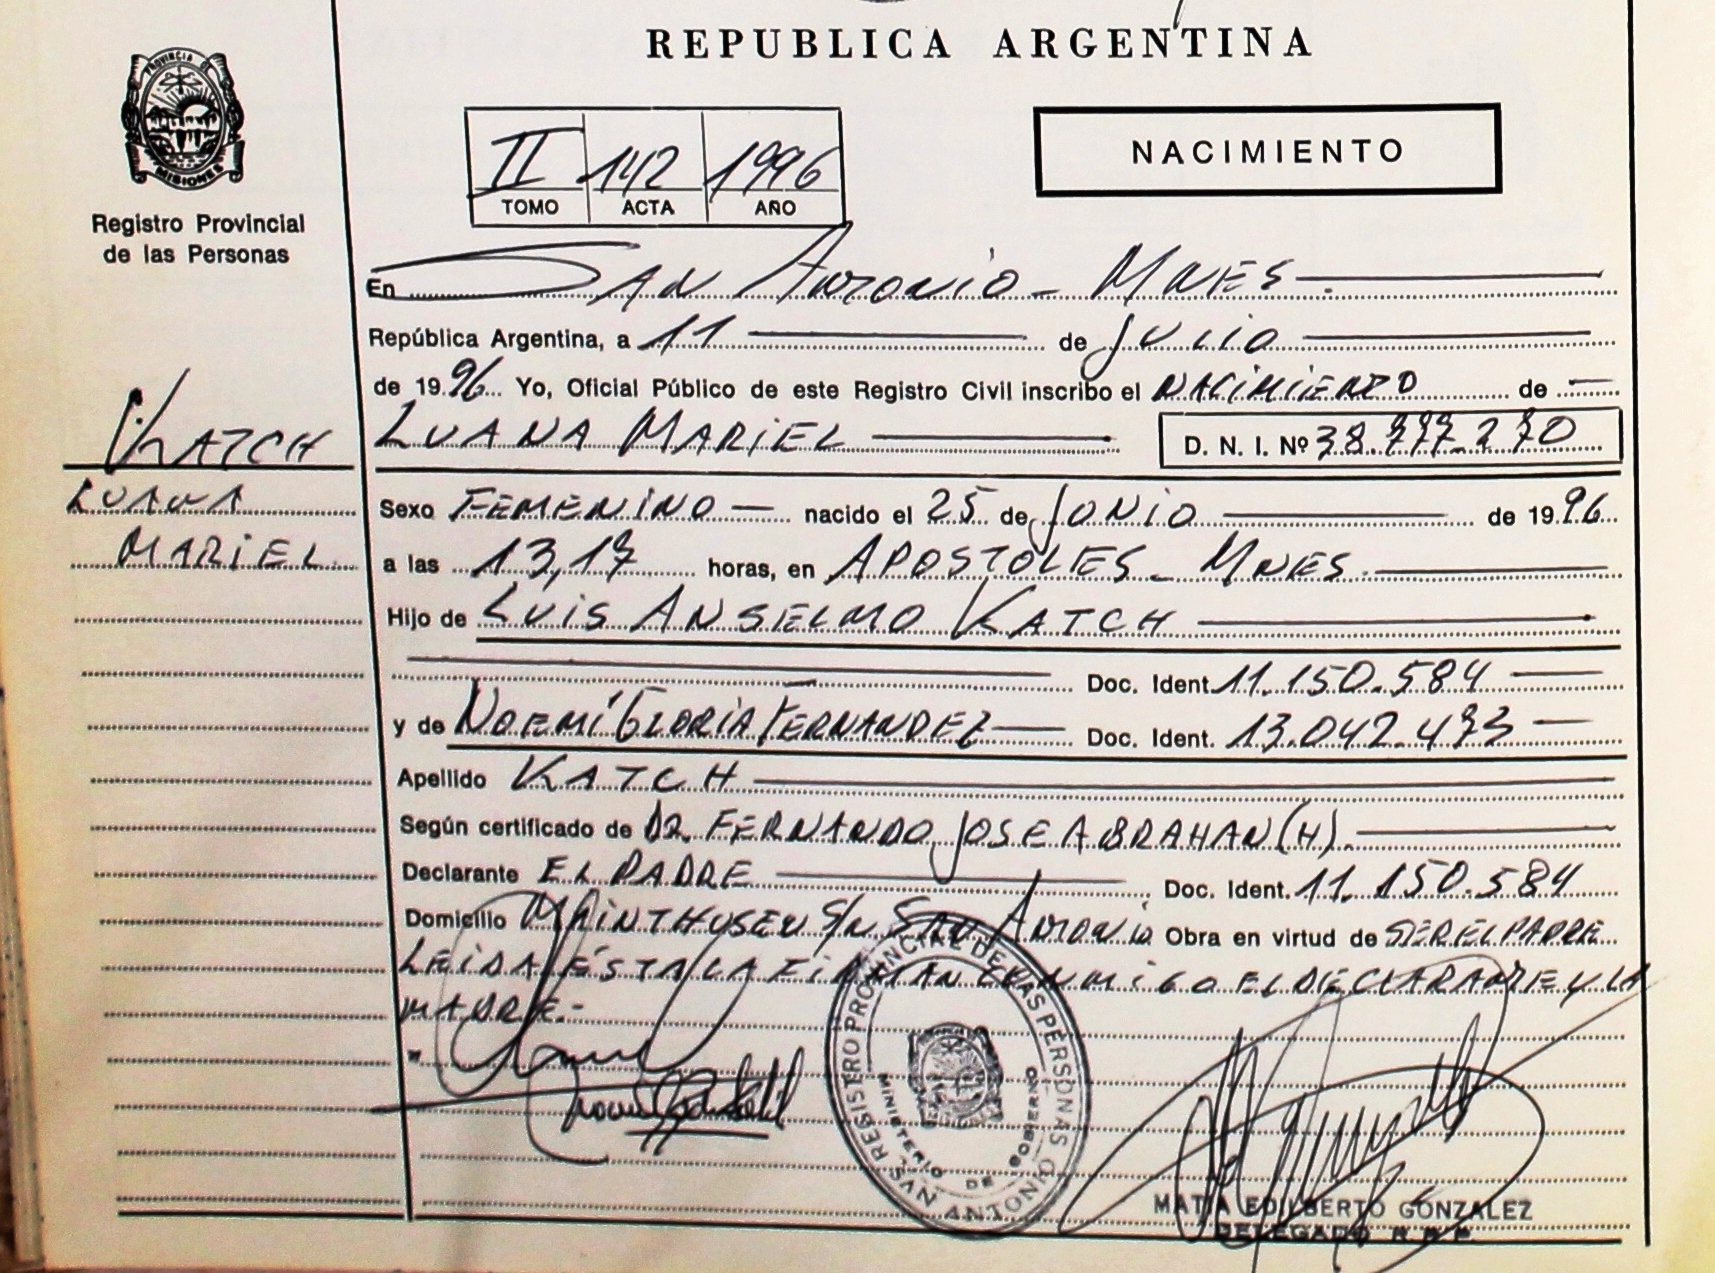 REPUBLICA ARGENTINA
PROVINCIA DE
MISIONES
Registro Provincial
de las Personas
II 142 1996
TOMO ACTA AÑO
NACIMIENTO
En SAN ANTONIO - MNES.
República Argentina, a 11 de JULIO
de 1996 Yo, Oficial Público de este Registro Civil inscribo el NACIMIENTO de
LUANA MARIEL D. N. I. Nº 38.777.270
KATCH
LUANA
MARIEL
Sexo FEMENINO nacido el 25 de JUNIO de 1996
a las 13,17 horas, en APOSTOLES - MNES.
Hijo de LUIS ANSELMO KATCH
Doc. Ident. 11.150.584
y de NOEMÍ GLORIA FERNANDEZ Doc. Ident. 13.042.473
Apellido KATCH
Según certificado de DR. FERNANDO JOSE ABRAHAN (H).
Declarante EL PADRE Doc. Ident. 11.150.584
Domicilio S/N SAN ANTONIO Obra en virtud de SER EL PADRE
LEIDA ÉSTA LA FIRMAN CONMIGO EL DECLARANTE Y LA
MADRE.-
REGISTRO PROVINCIAL DE LAS PERSONAS
MINISTERIO DE GOBIERNO
SAN ANTONIO
EDILBERTO GONZALEZ
DELEGADO R P P